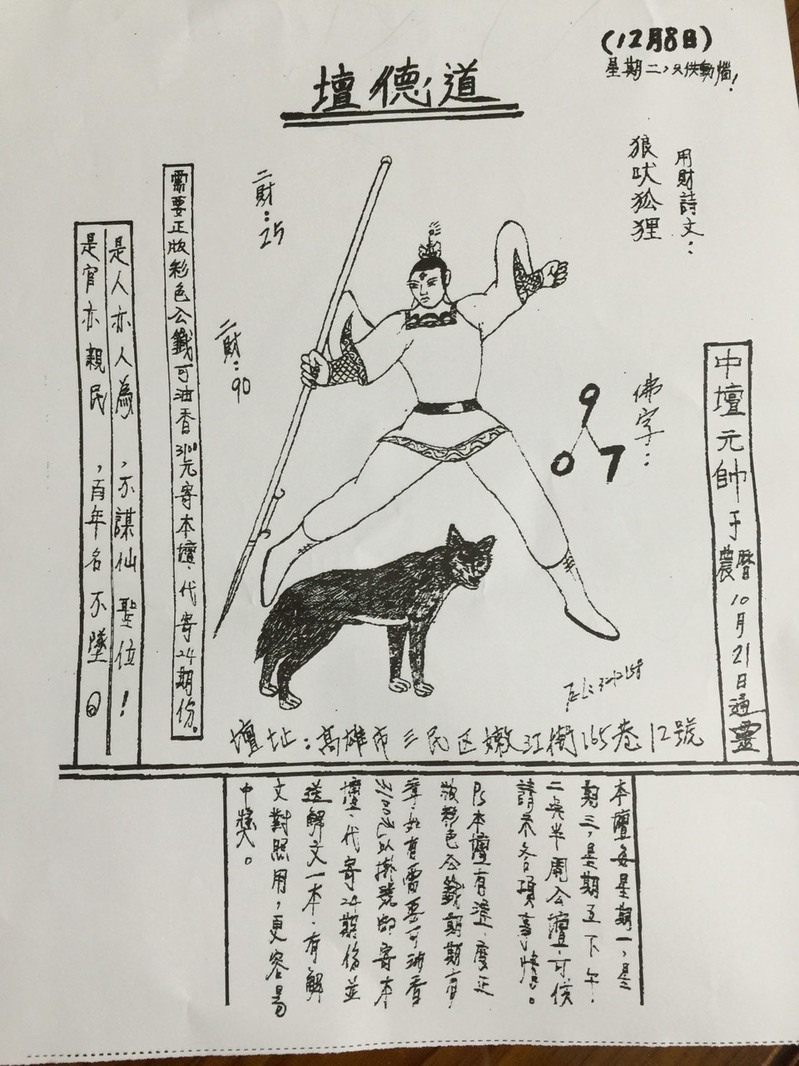 (12月8日)
星期二,只供動惱!
道德壇
用財詩文:
狼吠狐狸
二財:25
二財:90
佛字:
9
0 7
中壇元帥于農曆10月21日通靈
需要正版彩色公籤可油香3100元寄本壇.代寄24期份。
是人亦人為,不謀仙聖位!
是官亦親民,百年名不墜
壇址:高雄市三民區嫩江街165巷12號
本壇每星期一,星
期三,星期五下午.
二點半開公壇.可供
請示各項事情。
PS本壇有
版彩色公籤期期有
準.如有需要可油香
3100元以掛號郵寄本
壇.代寄24期份並
送解文一本.有解
文對照用,更容易
中獎。